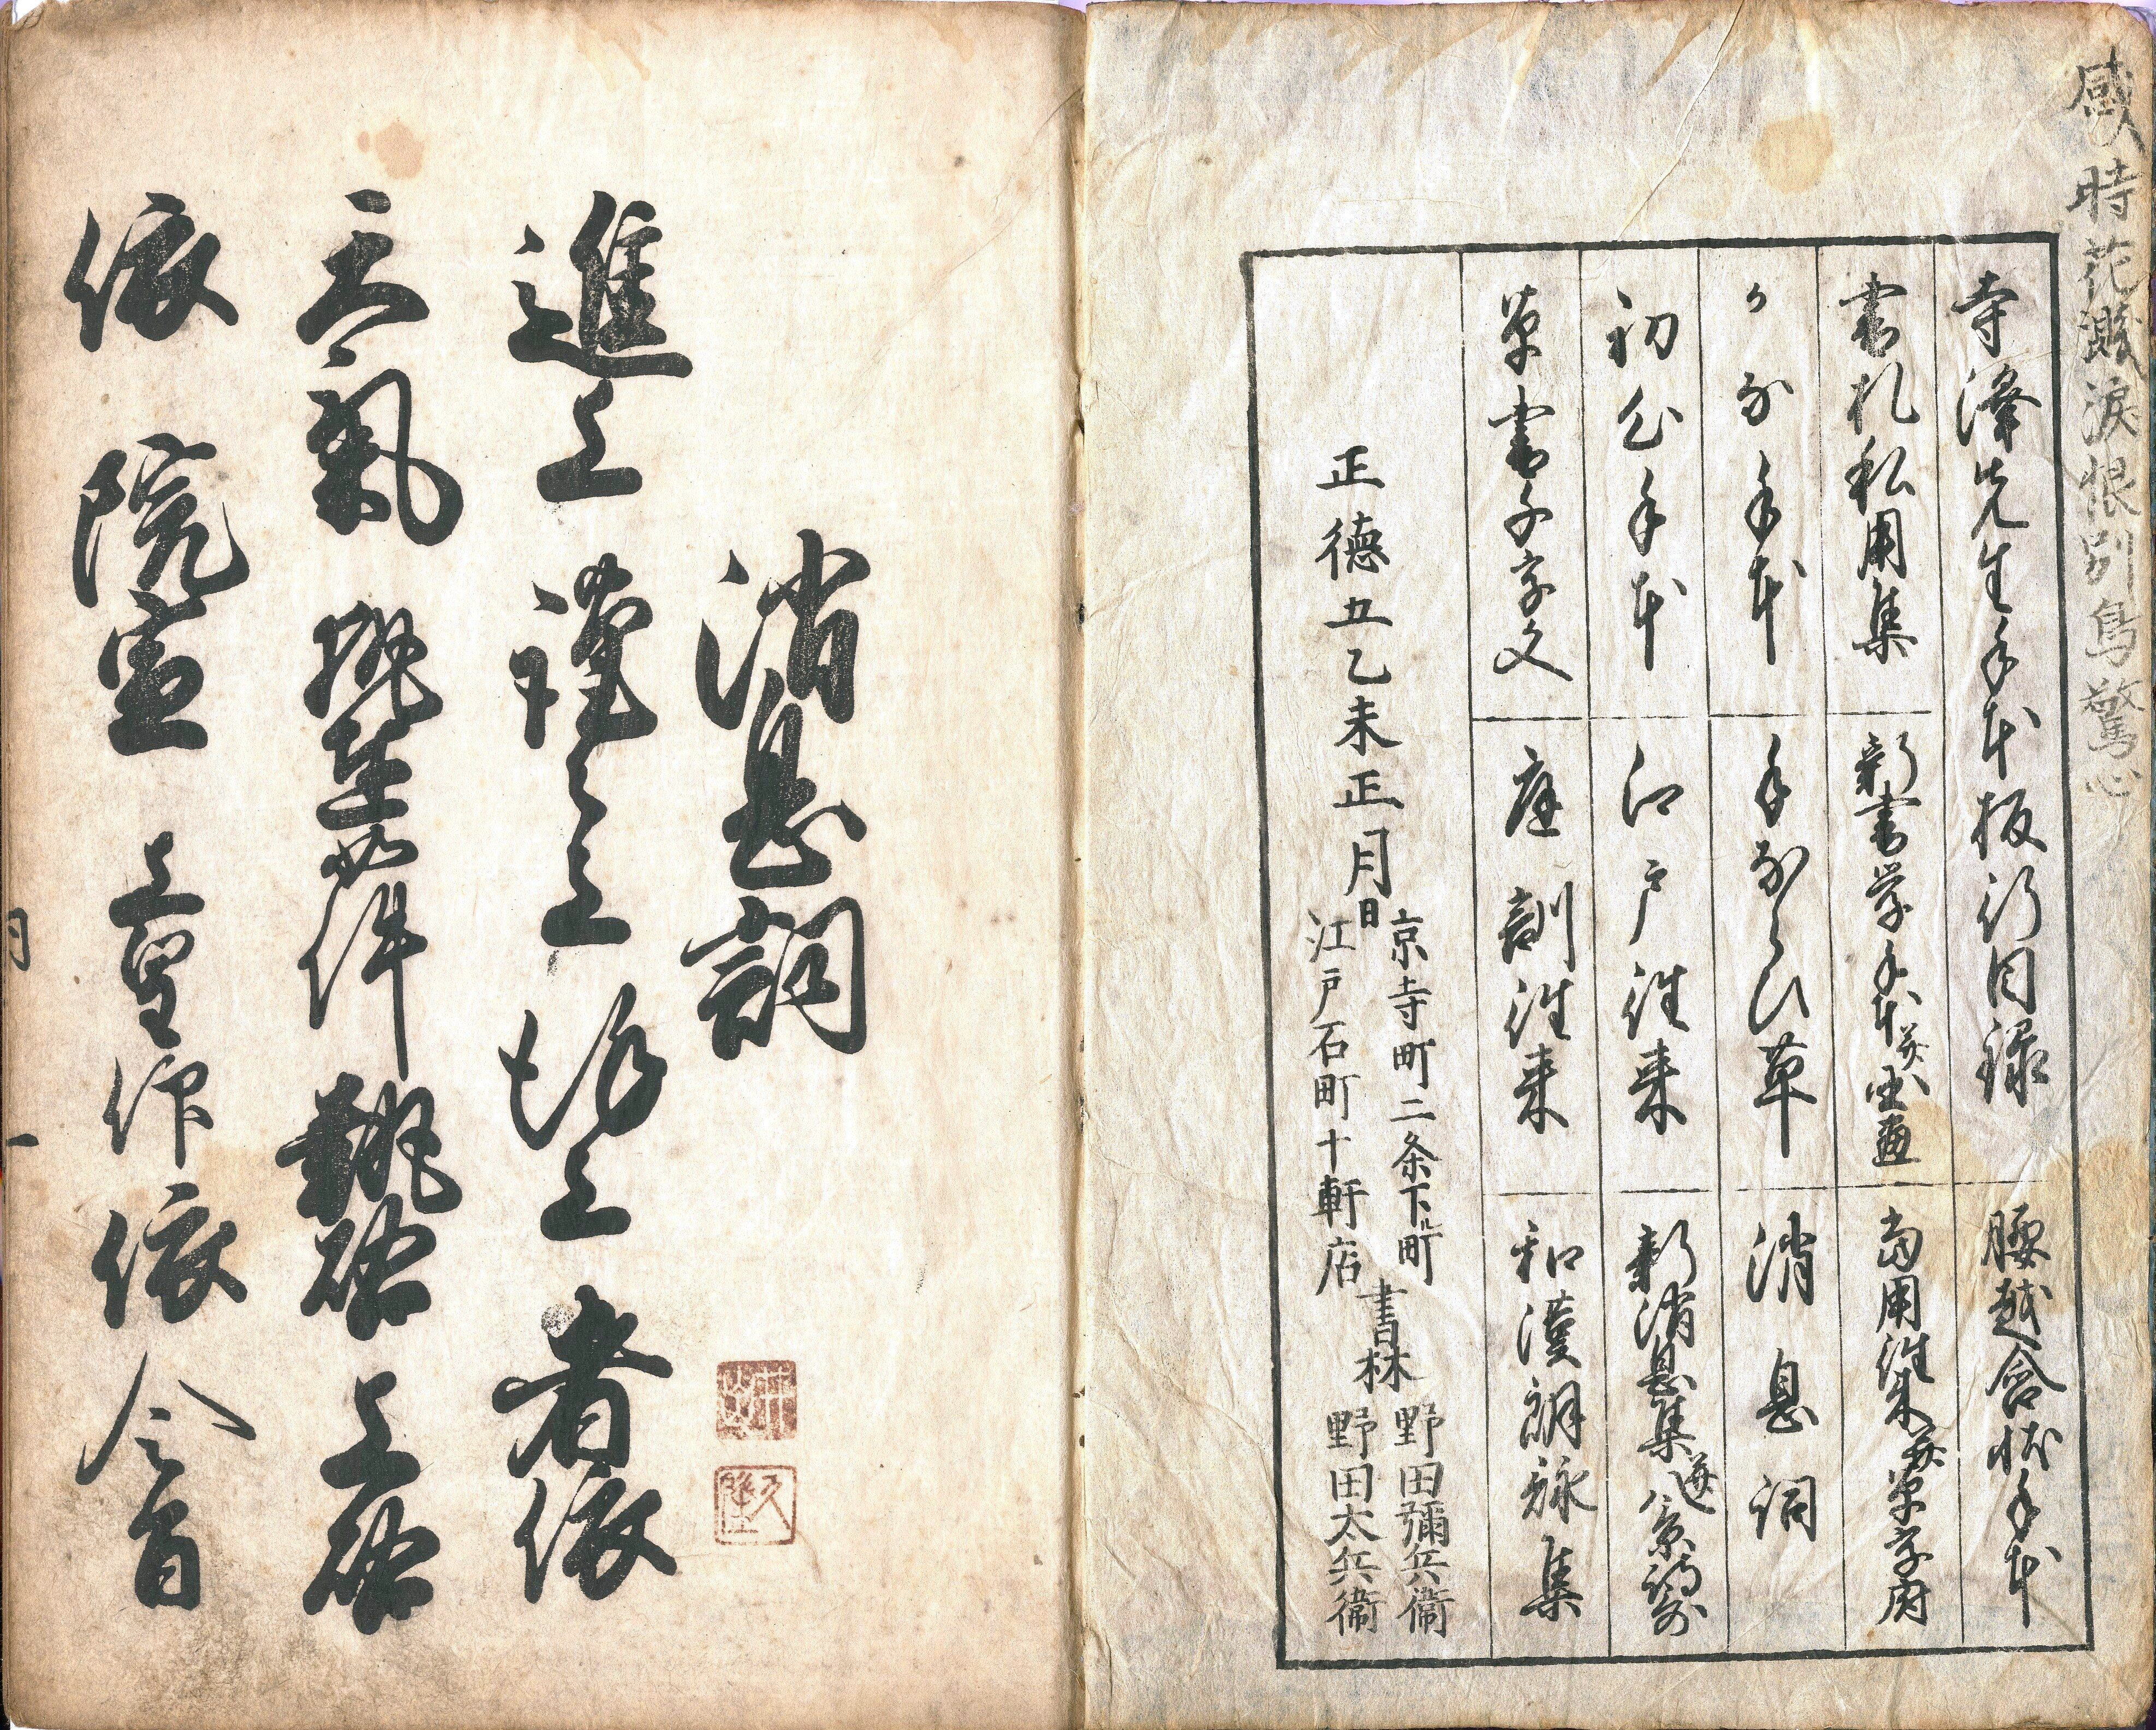 感時花濺涙恨別鳥驚心
寺澤先生手本板行目録
腰越含状手本
書札私用集
新書学手本
当用往来
かな手本
手ならひ草
消息詞
初心手本
江戸往来
新消息集
草書千字文
庭訓往来
和漢朗詠集
正徳五乙未正月日
京寺町二条下ル町
江戸石町十軒店
書林
野田彌兵衛
野田太兵衛
消息詞
進上 謹々上 謹上 者依
天氣 執達如件 執啓 上啓
依 院宣 上皇仰 依 令旨